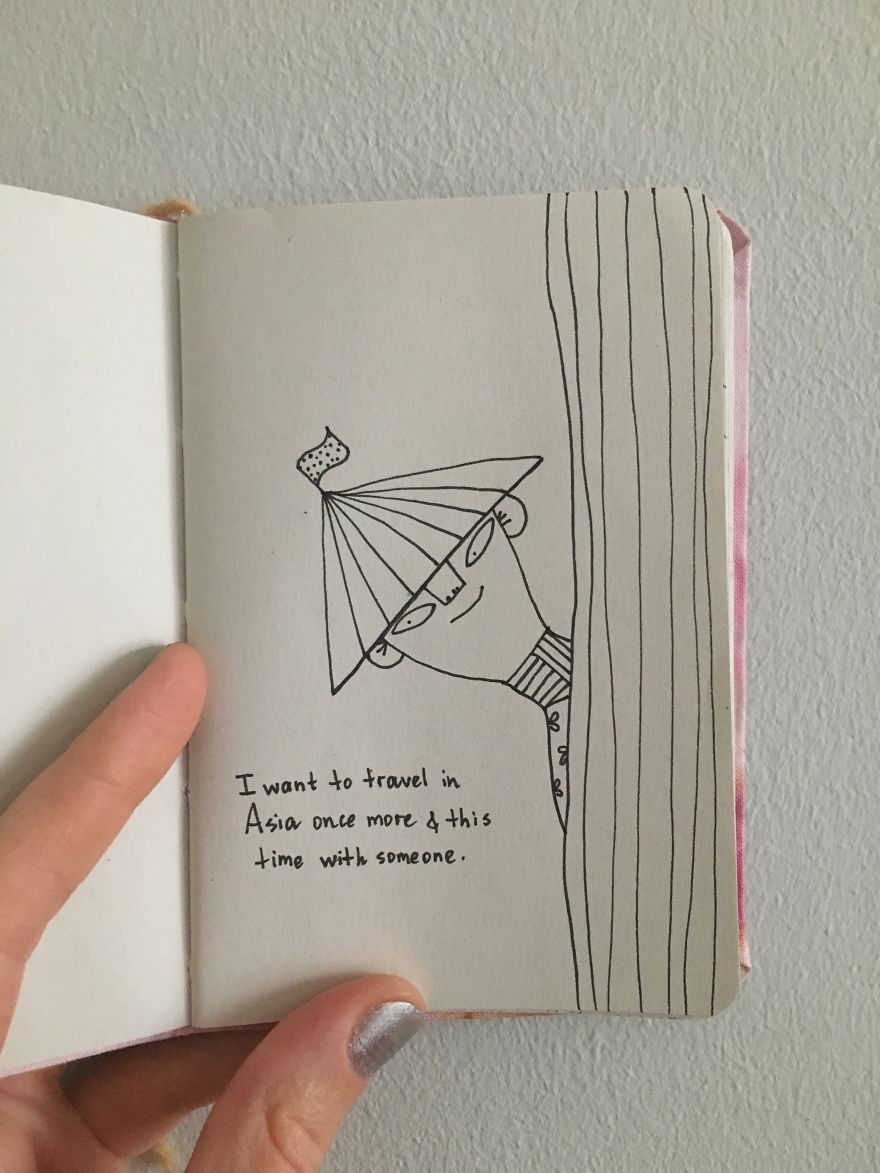 I want to travel in
Asia once more & this
time with someone.